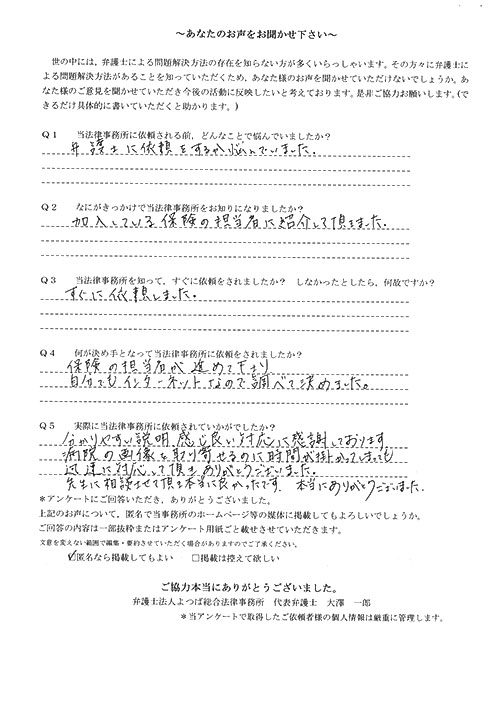 ～あなたのお声をお聞かせ下さい～
世の中には、弁護士による問題解決方法の存在を知らない方が多くいらっしゃいます。その方々に弁護士に
よる問題解決方法があることを知っていただくため、あなた様のお声を聞かせていただけないでしょうか。あ
なた様のご意見を聞かせていただき今後の活動に反映したいと考えております。是非ご協力お願いします。(で
きるだけ具体的に書いていただくと助かります。)
Q1 当法律事務所に依頼される前，どんなことで悩んでいましたか？
弁護士に依頼をするか悩んでいました。
Q2 なにがきっかけで当法律事務所をお知りになりましたか？
加入している保険の担当者に紹介して頂きました。
Q3 当法律事務所を知って，すぐに依頼をされましたか？ しなかったとしたら、何故ですか？
すぐに依頼しました。
Q4 何が決め手となって当法律事務所に依頼をされましたか？
保険の担当者が進めて下さり
自分でもインターネットなので調べて決めました。
Q5 実際に当法律事務所に依頼されていかがでしたか？
分かりやすい説明、感じ良い対応に感謝しております
病院の画像を取り寄せるのに時間が掛かってしまっても
迅速に対応して頂きありがとうございました。
先生に相談させて頂き本当に良かったです。本当にありがとうございました。
＊アンケートにご回答いただき，ありがとうございました。
上記のお声について，匿名で当事務所のホームページ等の媒体に掲載してもよろしいでしょうか。
ご回答の内容は一部抜粋またはアンケート用紙ごと載せさせていただきます。
文意を変えない範囲で編集・要約させていただく場合がありますのでご了承ください。
☑匿名なら掲載してもよい □掲載は控えて欲しい
ご協力本当にありがとうございました。
弁護士法人よつば総合法律事務所 代表弁護士 大澤 一郎
＊当アンケートで取得したご依頼者様の個人情報は厳重に管理します。